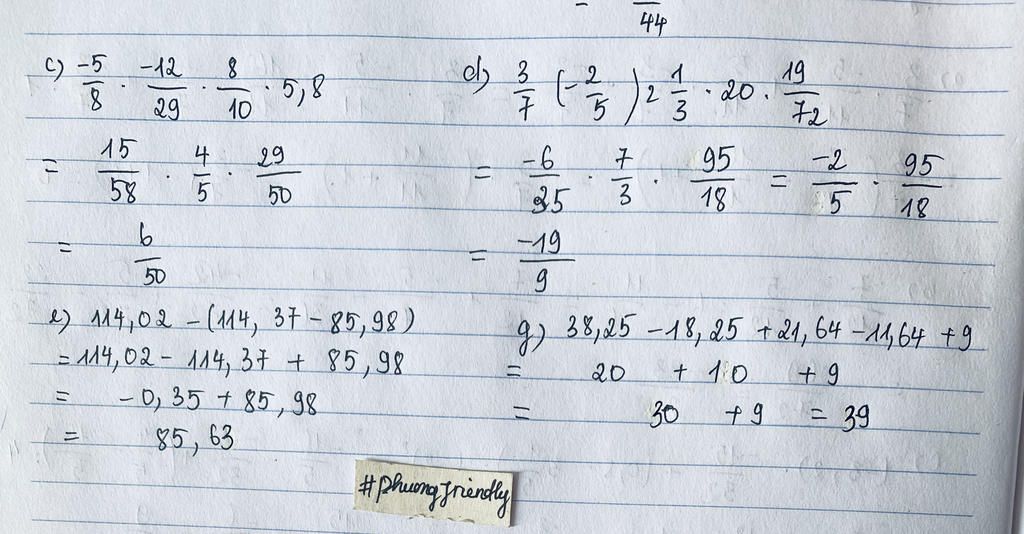 - 44
c) -5/8 · -12/29 · 8/10 · 5,8
= 15/58 · 4/5 · 29/50
= 6/50
d) 3/7 (-2/5) 2 1/3 · 20 · 19/72
= -6/25 · 7/3 · 95/18 = -2/5 · 95/18
= -19/9
e) 114,02 - (114,37 - 85,98)
= 114,02 - 114,37 + 85,98
= -0,35 + 85,98
= 85,63
g) 38,25 - 18,25 + 21,64 - 11,64 + 9
= 20 + 10 + 9
= 30 + 9 = 39
#phuongfriendly